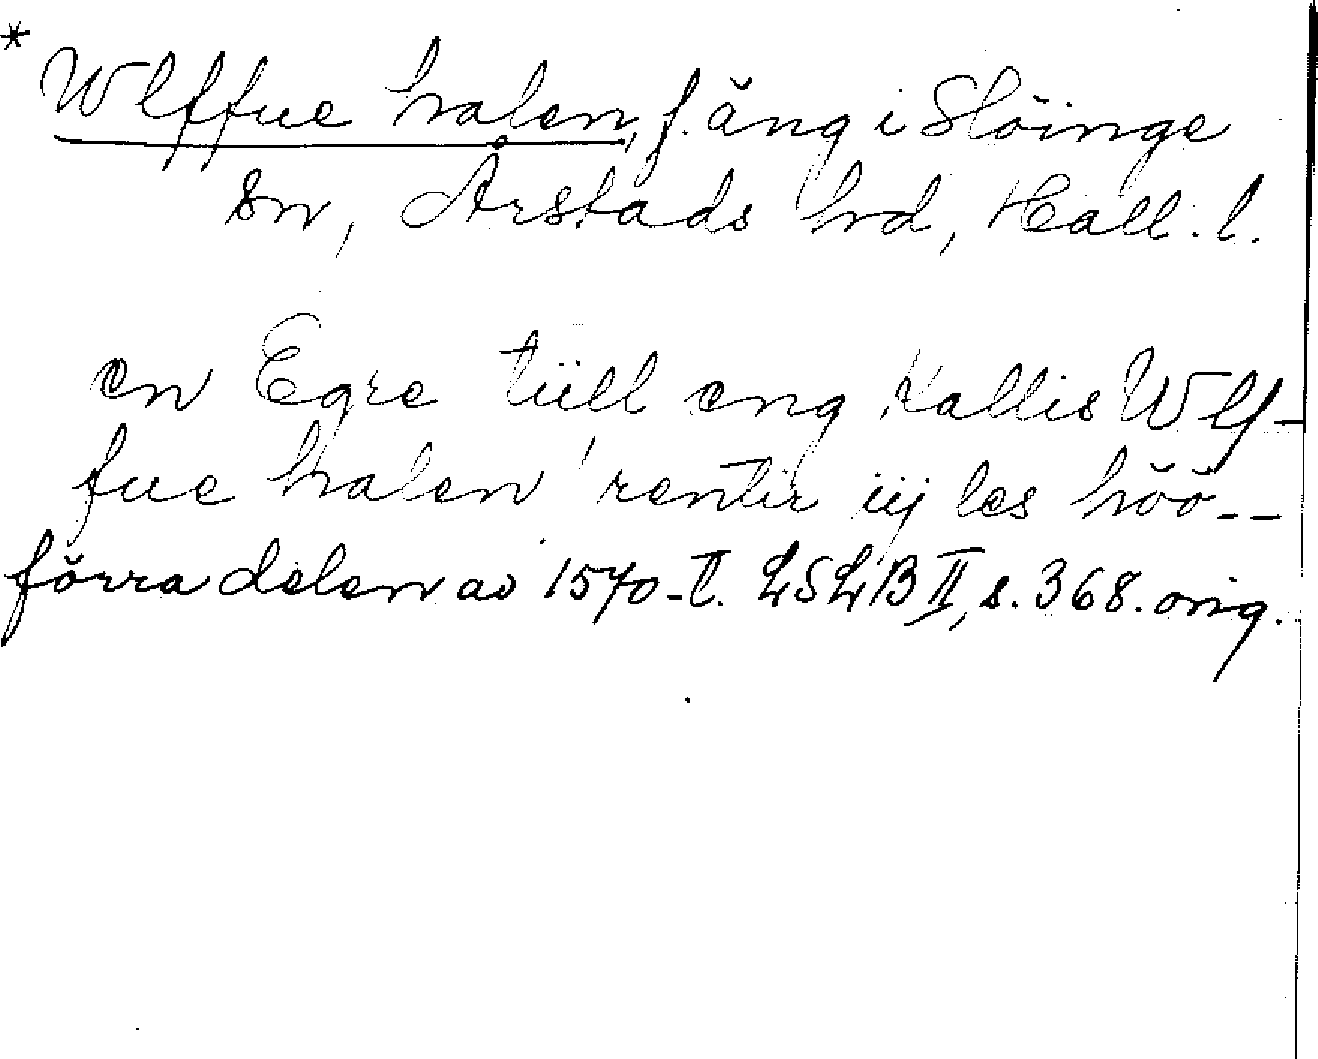 * Wlffue halen, f. äng i Slöinge
sn, Årstads hrd, Hall. l.
en Egre tiill eng Kallis Wlf-
fue halen rentir iij les höö--
förra delen av 1570-t. LSLB II, s. 368. orig.